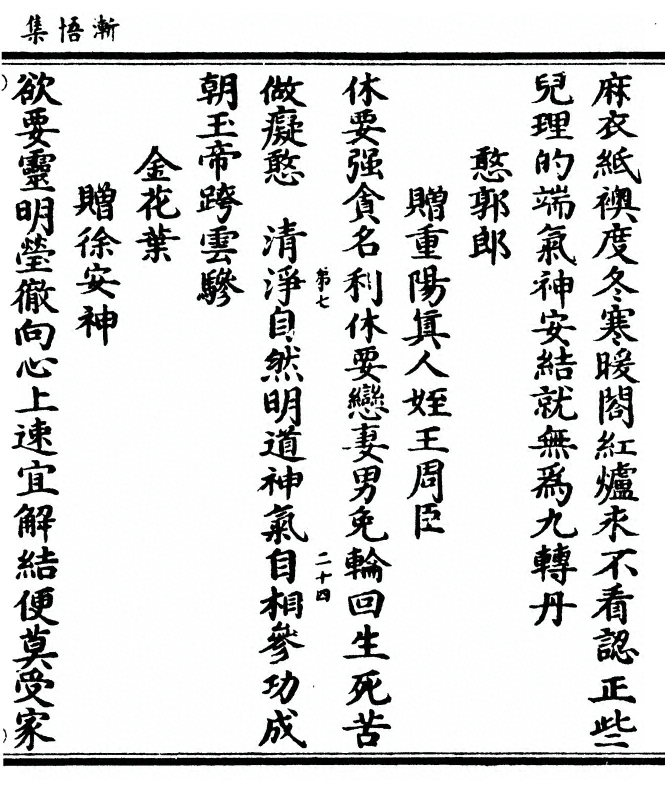 集悟漸
麻衣紙襖度冬寒暖閣紅爐未不看認正些
兒理的端氣神安結就無爲九轉丹
憨郭郎
贈重陽眞人姪王周臣
休要强貪名利休要戀妻男免輪回生死苦
第七
二十四
做癡憨　清淨自然明道神氣自相參功成
朝玉帝跨雲驂
金花葉
贈徐安神
欲要靈明瑩徹向心上速宜解結便莫受家